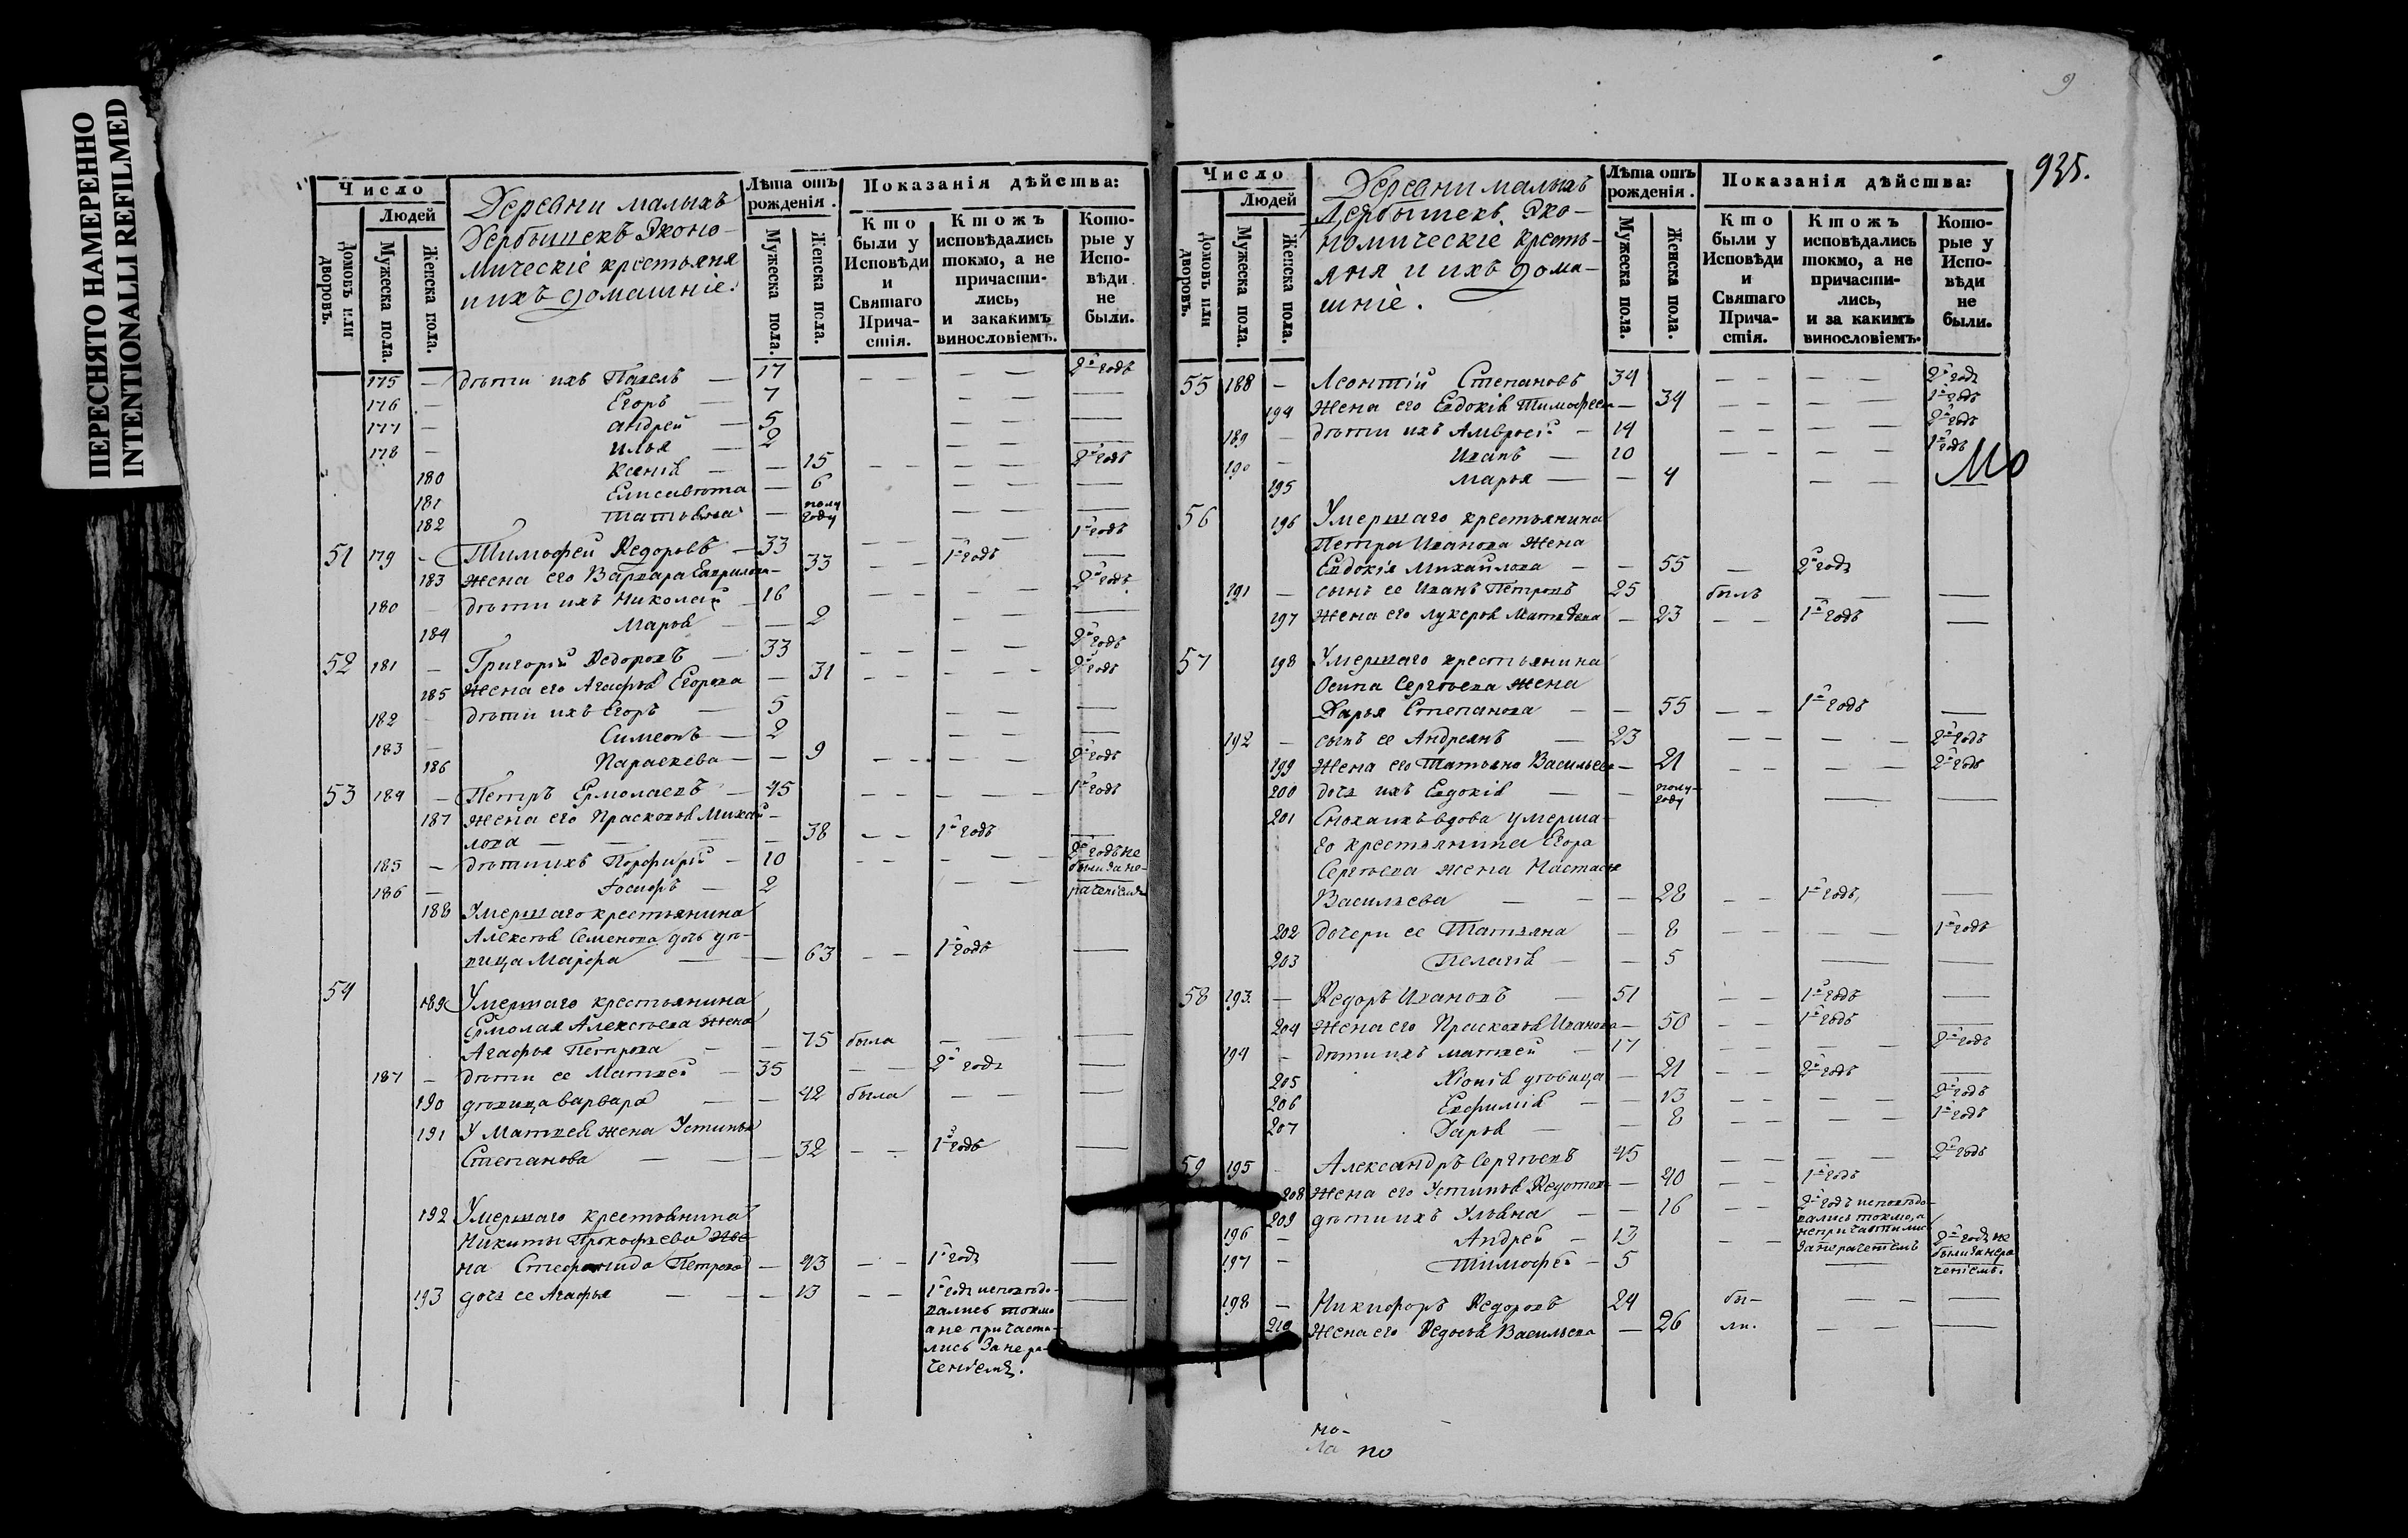 ПЕРЕСНЯТО НАМЕРЕННО
INTENTIONALLI REFILMED
Число
Людей
Домовъ или дворовъ.
Мужеска пола.
Женска пола.
Деревни малыхъ
Дербышекъ Эконо-
мическіе крестьяня
и ихъ домашніе.
Лѣта отъ рожденія.
Мужеска пола.
Женска пола.
Показанія дѣйства:
Кто были у Исповѣди и Святаго Прича-стія.
Ктожъ исповѣдались токмо, а не причасти-лись, и закакимъ винословіемъ.
Кото-рые у Испо-вѣди не были.
175 — дѣти ихъ Павелъ — 17 — — — 2й годъ
176 — Егоръ — 7 — — —
177 — андрей — 5 — — —
178 — илья — 2 — — —
180 Ксенія — — 15 — — — — 2й годъ
181 Елисавета — 6 — — —
182 татьяна — полу году — — —
51 179 — Тимофей Ѳедоровъ — 33 — — — — 1й годъ
183 жена его Варвара Гаврилова — 33 1й годъ —
180 — дѣти ихъ Николай — 16 — — — — 2й годъ
184 Марья — — 2 — — —
52 181 — Григорій Ѳедоровъ — 33 — — — — 2й годъ
185 жена его Агафья Егорова — 31 — — — — 2й годъ
182 — дѣти ихъ Егоръ — 5 — — —
183 — Симеонъ — 2 — — —
186 Параскева — — 9 — — — — 2й годъ
53 184 — Петръ Ермолаевъ — 45 — — — — 1й годъ
187 жена его Прасковья Михай-
лова — — — 38 — — 1й годъ —
185 — дѣти ихъ Порфирій — 10 — — — — 2й годъ не
были за не-
раченіемъ
186 — Іосифъ — 2 — — —
188 Умершаго крестьянина
Алексѣя Семенова дочь дѣ-
вица Марфа — — 63 — — 1й годъ —
54 189 Умершаго крестьянина
Ермолая Алексѣева жена
Агафья Петрова — — 75 была — — —
187 — дѣти ее Матвей — 35 — — 2й годъ —
190 дѣвица варвара — — 42 была — — —
191 У Матвея жена Устинья
Степанова — — — 32 — — 1й годъ —
192 Умершаго крестьянина
Никиты Прокофьева же-
на Стефанида Петрова — 43 — — 1й годъ —
193 дочь ее Агафья — — — 13 — — 1й годъ исповѣдо-
вались токмо
а не причасти-
лись за нера-
ченіемъ.
9
935.
Число
Людей
Домовъ или дворовъ.
Мужеска пола.
Женска пола.
Деревни малыхъ
Дербышекъ Эко-
номическіе кресть-
яня и ихъ дома-
шніе.
Лѣта отъ рожденія.
Мужеска пола.
Женска пола.
Показанія дѣйства:
Кто были у Исповѣди и Святаго Прича-стія.
Ктожъ исповѣдались токмо, а не причасти-лись, и за какимъ винословіемъ.
Кото-рые у Испо-вѣди не были.
55 188 — Леонтій Степановъ 34 — — — — 2й годъ
194 жена его Евдокія Тимофеева — 34 — — — — 1й годъ
189 — дѣти ихъ Амвросій — 14 — — — — 2й годъ
190 — Иванъ — 10 — — — — 1й годъ
195 марья — — 4 — — —
56 196 Умершаго крестьянина
Петра Иванова жена
Евдокія Михайлова — — 55 — 2й годъ
191 — сынъ ее Иванъ Петровъ 25 былъ — — —
197 жена его лукерья Матвѣева — 23 — — 1й годъ —
57 198 Умершаго крестьянина
Осипа Сергѣева жена
Дарья Степанова — — 55 — — 1й годъ —
192 — сынъ ее Андреянъ — 23 — — — — 2й годъ
199 жена его Татьяна Васильева — 21 — — — — 2й годъ
200 дочь ихъ Евдокія — — полу-году — —
201 Сноха ихъ вдова умерша-
го крестьянина Егора
Сергѣева жена Настасья
Васильева — — — 28 — — 1й годъ, —
202 дочери ее Татьяна — 8 — — — — 1й годъ
203 Пелагія — — 5 — —
58 193. — Ѳедоръ Ивановъ — 51 — — 1й годъ —
204 жена его Прасковья Иванова — 50 — — 1й годъ —
194 — дѣти ихъ матвей — 17 — — — — 2й годъ
205 Хіонія дѣвица — 21 — — 2й годъ —
206 Евфимія — — 13 — — — — 2й годъ
207 Дарья — — 8 — — — — 1й годъ
59 195 — Александръ Сергѣевъ 45 — — — — 2й годъ
208 жена его Устинья Ѳедотова — 40 — — 1й годъ
209 дѣти ихъ Ульяна — — 16 — — 2й годъ исповѣдо-
вались токмо, а
не причастились
за нераченіемъ
196 — Андрей — 13 — — 2й годъ не
были за нера
ченіемъ.
197 — Тимофей — 5 —
198 — Никифоръ Ѳедоровъ 24 бы- — — —
210 жена его Ѳедосья Васильева — 26 ли. — — —
но-
ла по